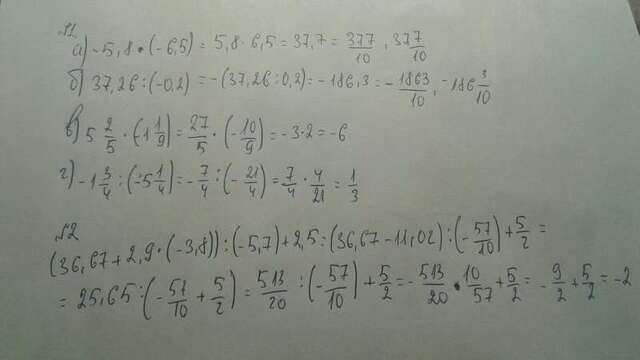 №1
а) -5,8·(-6,5) = 5,8·6,5 = 37,7 = 377/10, 37 7/10
б) 37,26:(-0,2) = -(37,26:0,2) = -186,3 = -1863/10, -186 3/10
в) 5 2/5 · (-1 1/9) = 27/5 · (-10/9) = -3·2 = -6
г) -1 3/4 : (-5 1/4) = -7/4 : (-21/4) = 7/4 · 4/21 = 1/3
№2
(36,67+2,9·(-3,8)):(-5,7)+2,5:(36,67-11,02):(-57/10)+5/2 =
= 25,65:(-57/10+5/2) = 513/20 : (-57/10)+5/2 = -513/20 · 10/57+5/2 = -9/2+5/2 = -2